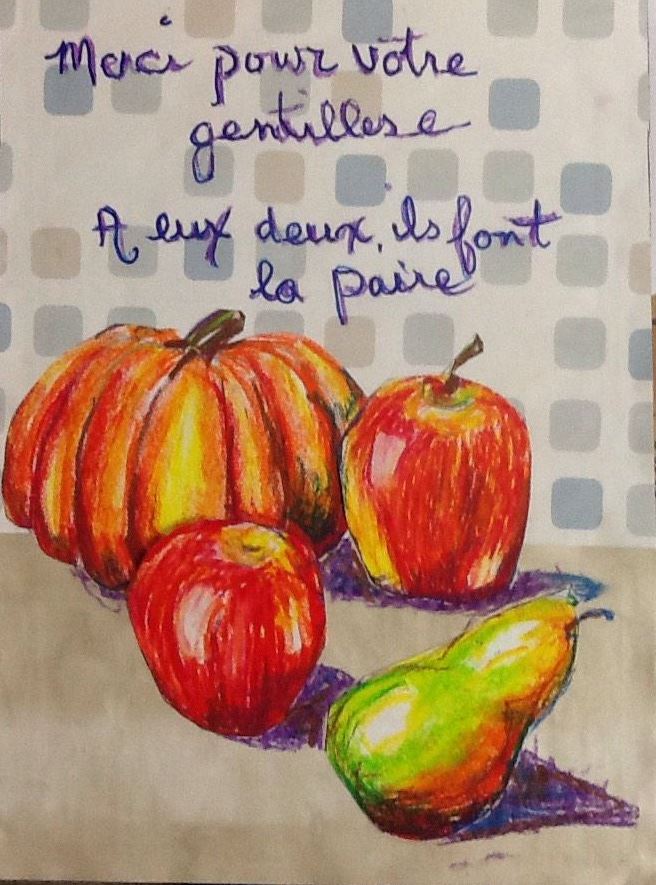 Merci pour votre
gentillesse
A eux deux, ils font
la paire